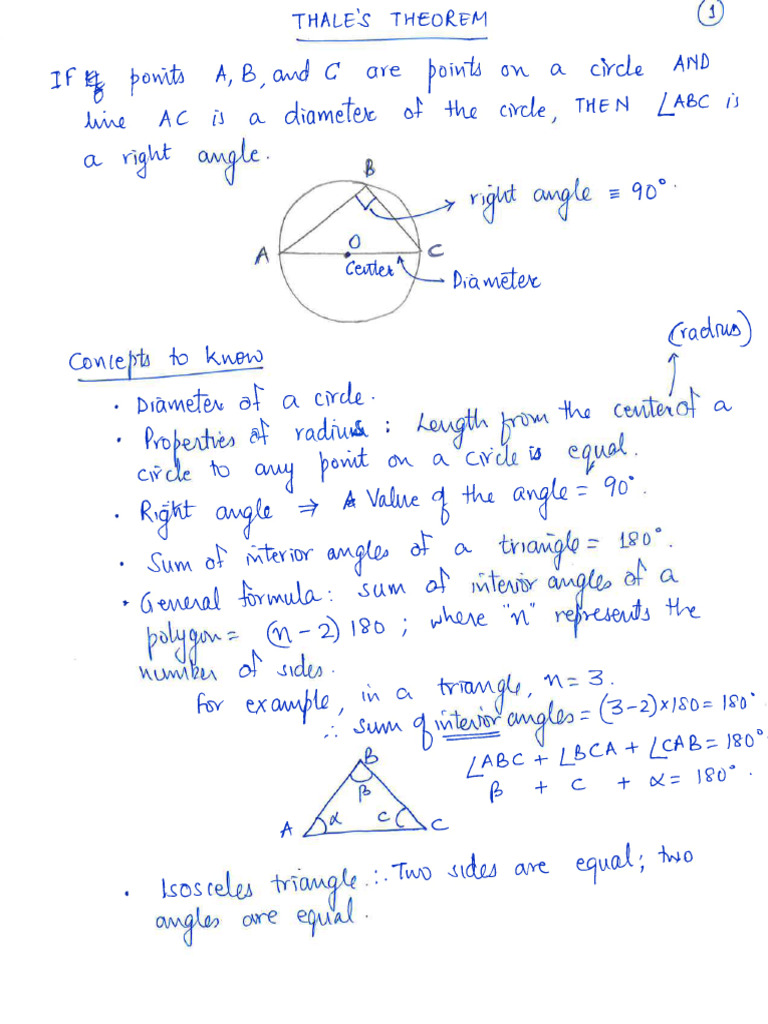 THALE'S THEOREM
1
IF points A, B, and C are points on a circle AND
line AC is a diameter of the circle, THEN ∠ABC is
a right angle.
B
right angle ≡ 90°.
A
O
C
Center
Diameter
(radius)
Concepts to know
· Diameter of a circle.
· Properties of radius : Length from the center of a
circle to any point on a circle is equal.
· Right angle ⇒ Value of the angle = 90°.
· Sum of interior angles of a triangle = 180°.
· General formula: sum of interior angles of a
polygon = (n-2) 180 ; where "n" represents the
number of sides.
For example, in a triangle, n = 3.
∴ sum of interior angles = (3-2)×180 = 180°
B
∠ABC + ∠BCA + ∠CAB = 180°
β
β + C + α = 180°.
A
α
C
C
· Isosceles triangle ∴ Two sides are equal; two
angles are equal.